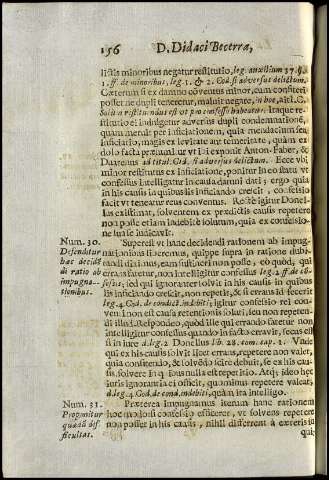 156 D. Didaci Becerra,
lictis minoribus negatur restitutio, leg. auxilium 37. §.
1. ff. de minoribus, leg. 1. & 2. Cod. si adversus delictum.
Cæterum si ex damno conventus minor, cum confiteri
posset ne dupli teneretur, maluit negare, in hoc, ait I. C.
restituendus est ut pro confesso habeatur. Itaque re-
stitutio ei indulgetur adversus dupli condemnationé,
quam meruit per inficiationem, quia mendacium seu
inficiatio, magis ex levitate aut temeritate, quàm ex
dolo facta præsumitur vt ibi exponit Anton. Faber, &
Duarenus ad titul. Cod. si adversus delictum. Ecce vbi
minor restitutus ex inficiatione, ponitur in eo statu vt
confessus intelligatur in causa damni dati; ergo quia
in his causis in quibus lis inficiando crescit, confessio
facit vt teneatur reus conventus. Recte igitur Donel-
lus existimat, solventem ex prædictis causis repetere
non posse etiam indebitè solutum, quia ex confessio-
ne sua se iudicavit.
Num. 30.
Defendatur
hac decidé
di ratio ab
impugna-
tionibus.
Superest vt hanc decidendi rationem ab impug-
nationibus
errans fatetur, non intelligitur confessus leg. 2. ff. de cō-
fessis, sed qui ignoranter solvit in his causis in quibus
lis inficiando crescit, non repetit, & si errans id fecerit
leg. 4. Cod. de condict. indebiti, igitur confessio rei con-
di illustres respondeo, quòd ille qui errando fatetur non
intelligitur confessus quando in facto erravit, secus est
si in iure d. leg. 2. Donellus lib. 28. com. cap. 1. Vnde
qui ex his causis solvit licet errans, repetere non valet,
quia confitendo, & solvēdo
sus solvere in quibus nulla est repetitio. Atq; ideo hęc
iuris ignorantia ei officit, quominus repetere valeat,
d. leg. 4. Cod. de cond. indebiti, quàm ita intelligo.
Num. 31.
Proponitur
quædā dif-
ficultas.
Præterea impugnamus iterum hanc rationem
hoc modo si confessio efficeret, vt solvens repetere
non posset in his causis, nihil different à cæteris in
qui-